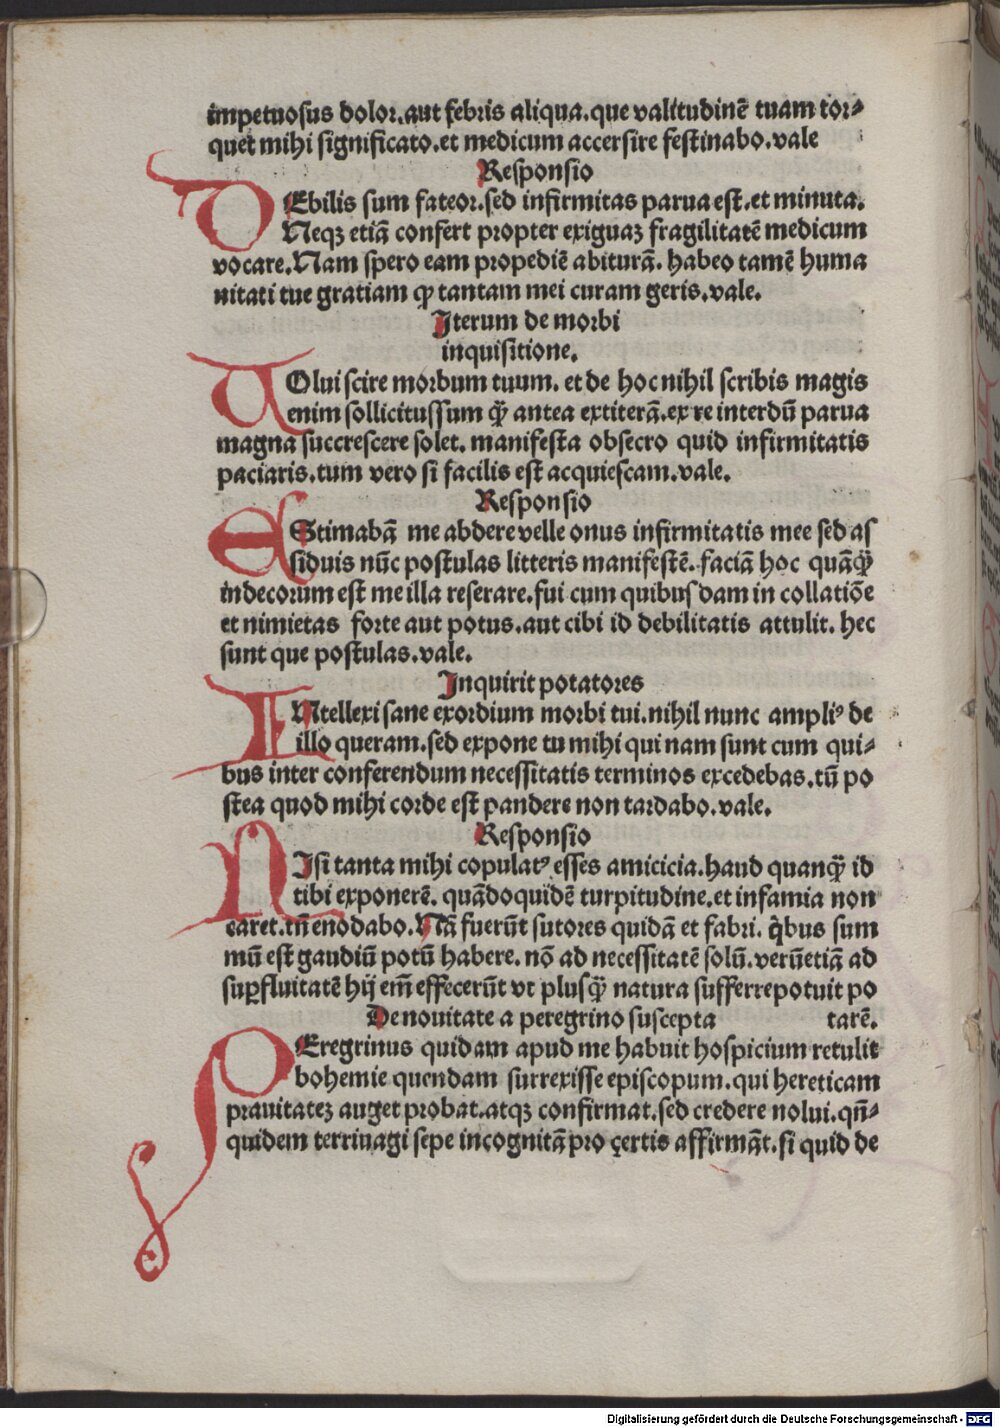 impetuosus dolor.aut febris aliqua.que valitudinē tuam tor⸗
quet mihi significato.et medicum accersire festinabo.vale
Responsio
DEbilis sum fateor.sed infirmitas parua est.et minuta.
Neqꝫ etiā confert propter exiguaꝫ fragilitatē medicum
vocare.Nam spero eam propediē abiturā. habeo tamē huma
nitati tue gratiam ꝙ tantam mei curam geris.vale.
Iterum de morbi
inquisitione.
UOlui scire morbum tuum. et de hoc nihil scribis magis
enim sollicitus sum ꝙ̄ antea extiterā.ex re interdū parua
magna succrescere solet. manifesta obsecro quid infirmitatis
paciaris.tum vero si facilis est acquiescam.vale.
Responsio
EStimabā me abdere velle onus infirmitatis mee sed as
siduis nūc postulas litteris manifestē. faciā hoc quāꝙ̄
indecorum est me illa reserare.fui cum quibusdam in collatiōe
et nimietas forte aut potus.aut cibi id debilitatis attulit. hec
sunt que postulas.vale.
Inquirit potatores
INtellexi sane exordium morbi tui.nihil nunc ampliꝰ de
illo queram.sed expone tu mihi qui nam sunt cum qui⸗
bus inter conferendum necessitatis terminos excedebas.tū po
stea quod mihi corde est pandere non tardabo.vale.
Responsio
NIsi tanta mihi copulatꝰ esses amicicia.haud quanꝙ̄ id
tibi exponerē. quādoquidē turpitudine.et infamia non
caret.tn̄ enodabo.Nā fuerūt sutores quidā et fabri. q̇bus sum
mū est gaudiū potū habere. nō ad necessitatē solū.verūetiā ad
suꝑfluitatē hij em̄ effecerūt vt plusꝙ̄ natura sufferre potuit po
De nouitate a peregrino suscepta tarē.
PEregrinus quidam apud me habuit hospicium retulit
bohemie quendam surrexisse episcopum.qui hereticam
prauitateꝫ auget probat.atqꝫ confirmat.sed credere nolui.qn̄⸗
quidem terriuagi sepe incognitā pro certis affirmāt.si quid de
Digitalisierung gefördert durch die Deutsche Forschungsgemeinschaft - DFG